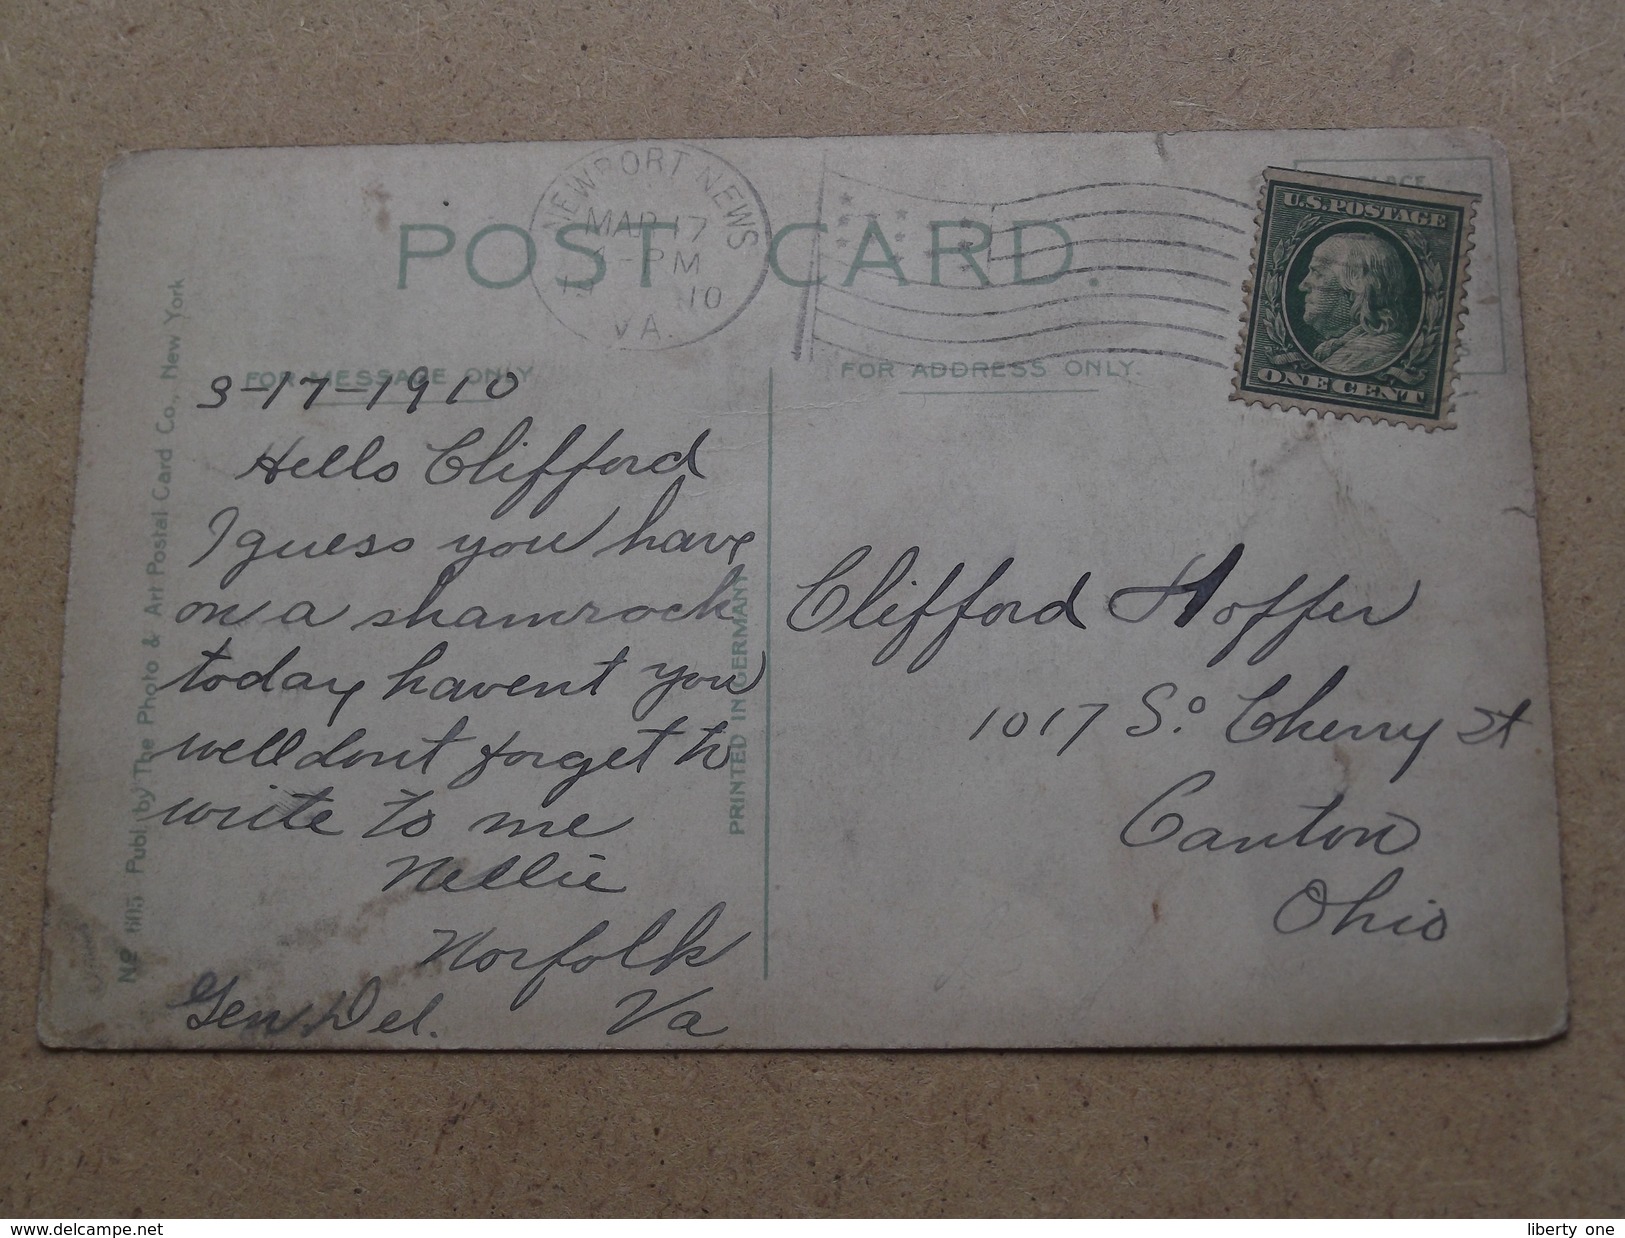 NEWPORT NEWS
MAR 17
-PM
10
VA.
POST CARD.
PLACE
U.S. POSTAGE
ONE CENT
FOR MESSAGE ONLY
FOR ADDRESS ONLY.
3-17-1910
Hello Clifford
I guess you have
on a shamrock
today havent you
well dont forget to
write to me
Nellie
Norfolk
Gen. Del. Va
Clifford Hoffer
1017 So. Cherry St
Canton
Ohio
No 605 Publ. by The Photo & Art Postal Card Co., New York
PRINTED IN GERMANY
www.delcampe.net
liberty one